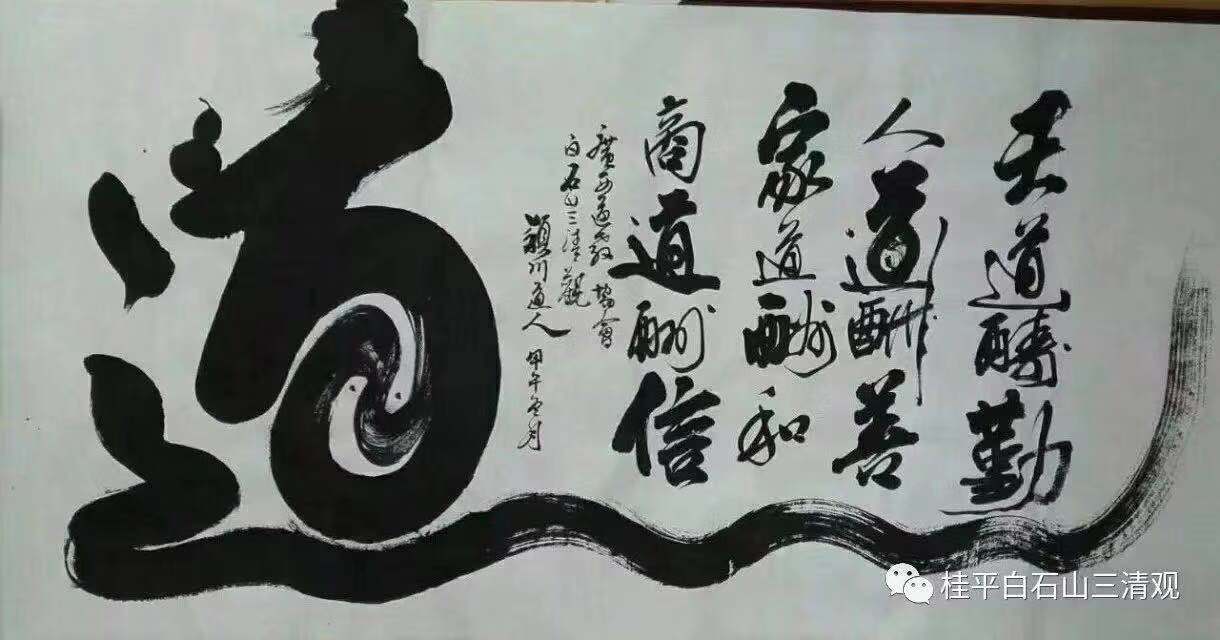 天道酬勤
人道酬善
家道酬和
商道酬信
廣西道教協會
白石山三清觀
穎川道人 甲午冬月
道
桂平白石山三清观